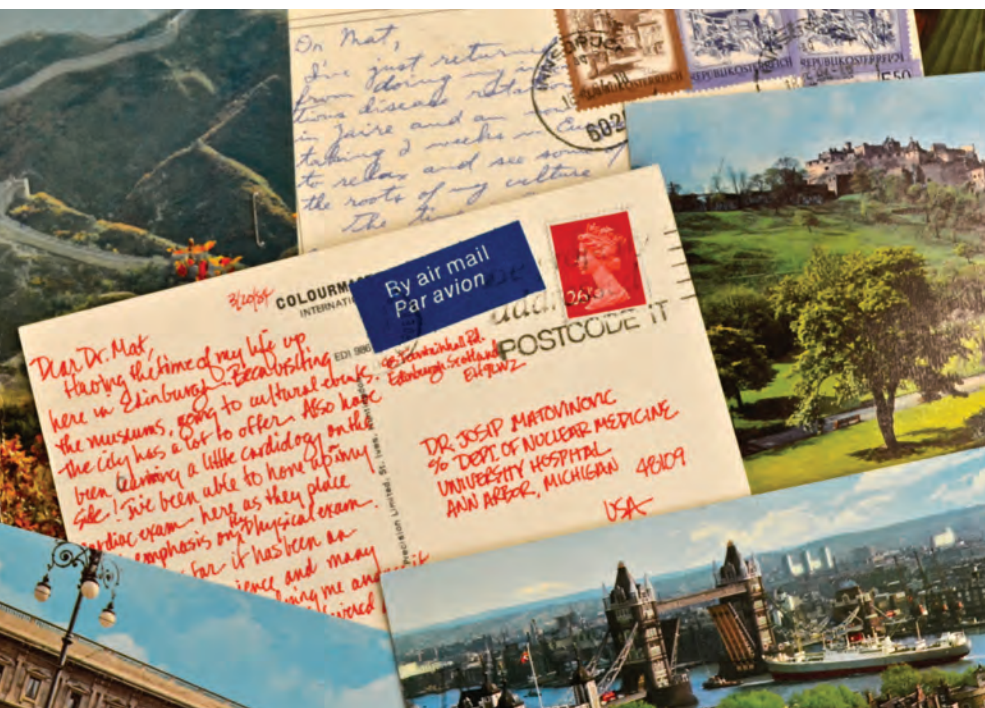 Dr. Mat,
I've just returned
from doing my in
tious disease rotation
in Zaire and am now
taking 2 weeks in Eu
to relax and see some
the roots of my culture
The
REPUBLIK ÖSTERREICH
REPUBLIK ÖSTERREICH
5.50
602
3/20/84
COLOURM
INTERNATI
By air mail
Par avion
26
POSTCODE IT
EDI 986
Dear Dr. Mat,
Having the time of my life up
here in Edinburgh. Been visiting
the museums, going to cultural events.
The city has a lot to offer. Also have
been learning a little cardiology on the
side! I've been able to hone up my
cardiac exam here as they place
emphasis on physical exam.
far it has been an
ience and many
ing me and
vered
Fountainhall Rd.
Edinburgh Scotland
Precision Limited, St. Ives,
DR. JOSIP MATOVINOVIC
c/o DEPT. OF NUCLEAR MEDICINE
UNIVERSITY HOSPITAL
ANN ARBOR, MICHIGAN 48109
USA